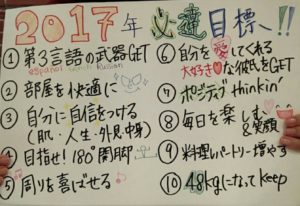 2017年 必達目標へ!!
① 第3言語の武器GET
español
Russian
② 部屋を快適に
③ 自分に自信をつける
(肌・人生・外見・中身)
④ 目指せ!180°開脚
⑤ 周りを喜ばせる
⑥ 自分を愛してくれる
大好きな彼氏をGET
⑦ ポジティブ thinkin'
⑧ 毎日を楽しむ
&笑顔
⑨ 料理レパートリー増やす
⑩ 48kgになってkeep